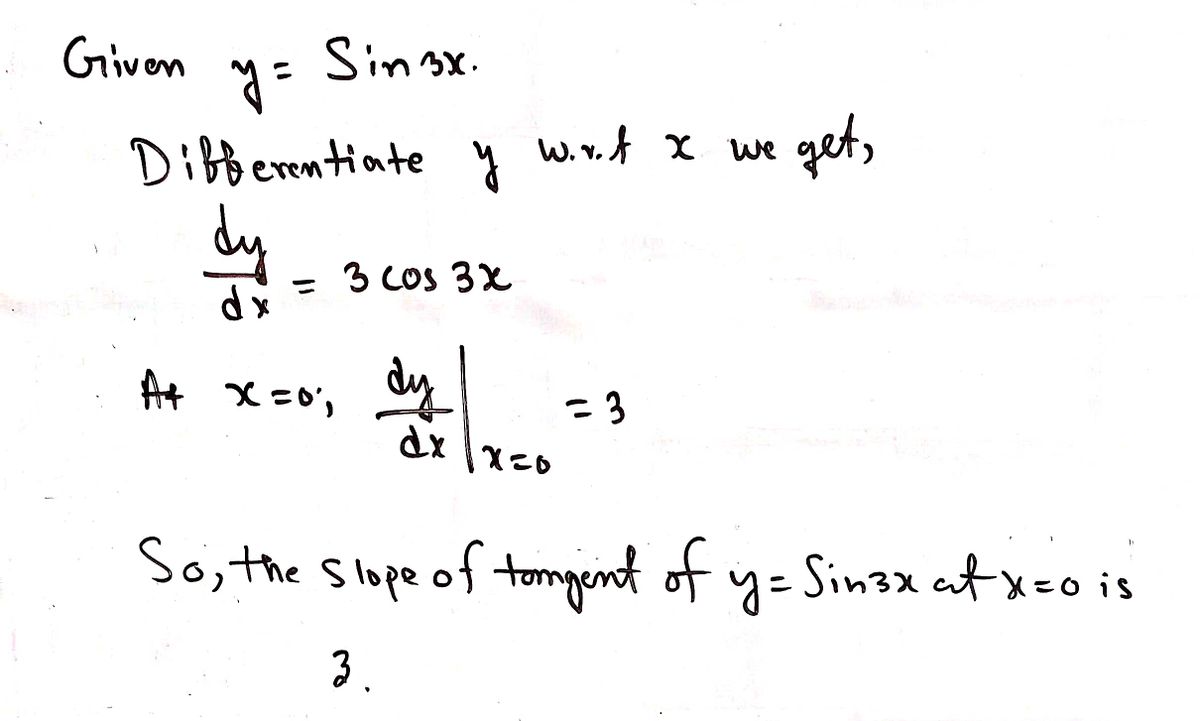 Given y = Sin 3x.
Differentiate y w.r.t x we get,
dy/dx = 3 cos 3x
At x=0, dy/dx|x=0 = 3
So, the slope of tangent of y = Sin3x at x=0 is
3.